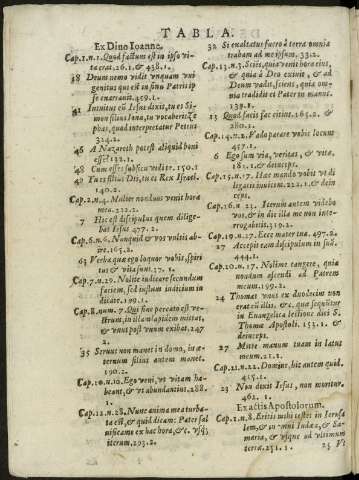 TABLA.
Ex Diuo Ioanne.
Cap.1.n.1. Quod factum est in ipso vi-
ta erat. 26.1. & 438.1.
18 Deum nemo vidit vnquam vni
genitus qui est in sinu Patris ip
se enarrauit. 459.1.
42 Intuitus eū Iesus dixit, tu es Si-
mon filius Iona, tu vocaberis Ce
phas, quod interpretatur Petrus
324.2.
46 A Nazareth potest aliquid boni
esse? 132.1.
48 Cum esses sub ficu vidi te. 150.1
49 Tu es filius Dei, tu es Rex Israel.
140.2.
Cap.2.n.4. Mulier nondum venit hora
mea. 212.2.
7 Hic est discipulus quem dilige-
bat Iesus 477.2.
Cap.6.n.6. Nunquid & vos vultis ab
ire. 165.2.
63 Verba quæ ego loquor vobis, spiri
tus & vita sunt. 27.1.
Cap.7.n.29. Nolite iudicare secundum
faciem, sed iustum iudicium in
dicate. 199.1.
Cap.8.num.7. Qui sine peccato est ve-
strum, in illam lapidem mittat,
& vnus post vnum exibat. 247
2.
35 Seruus non manet in domo, in æ-
ternum filius autem manet.
190.2.
Cap.10.n.10. Ego veni, vt vitam ha-
beant, & vt abundantius. 288.
1.
Cap.12.n.28. Nunc anima mea turba-
ta est, & quid dicam: Pater sal
uifica me ex hac hora, &c. vsq;
iterum. 293.2.
32 Si exaltatus fuero à terra omnia
traham ad me ipsum. 33.2.
Cap.13.n.3. Sciēs, quia venit hora eius,
& quia à Deo exiuit, & ad
Deum vadit, sciens, quia om-
nia tradidit ei Pater in manus.
139.1.
13 Quod facis fac citius. 165.2. &
280.2.
Cap.14.n.2. Vado parare vobis locum
457.1.
6 Ego sum via, veritas, & vita.
182.1. & deinceps.
Cap.15.n.17. Hæc mando vobis vt di
ligatis inuicem. 222.1. & dein
ceps.
Cap.16.n 23. Iterum autem videbo
vos, & in die illa me non inter-
rogabitis. 319.2.
Cap.19.n.17. Ecce mater tua. 497.2.
27 Accepit eam discipulum in suā.
444.1.
Cap.20.n.17. Noli me tangere, quia
nondum ascendi ad Patrem
meum. 199.2.
24 Thomas vnus ex duodecim non
erat cū illis. & c. quæ sequūtur
in Euangelica lectione diui S.
Thomæ Apostoli. 153.1. &
deinceps.
27 Mitte manum tuam in latus
meum. 21.1.
Cap.21.n.22. Domine, hic autem quid
415.1.
23 Non dixit Iesus, non moritur.
462. 1.
Ex actis Apostolorum.
Cap.1.n.8. Eritis mihi testes in Ierusa
lem, & in omni Iudæa, & Sa-
maria, & vsque ad vltimum
terræ. 251.1.
25 Vt